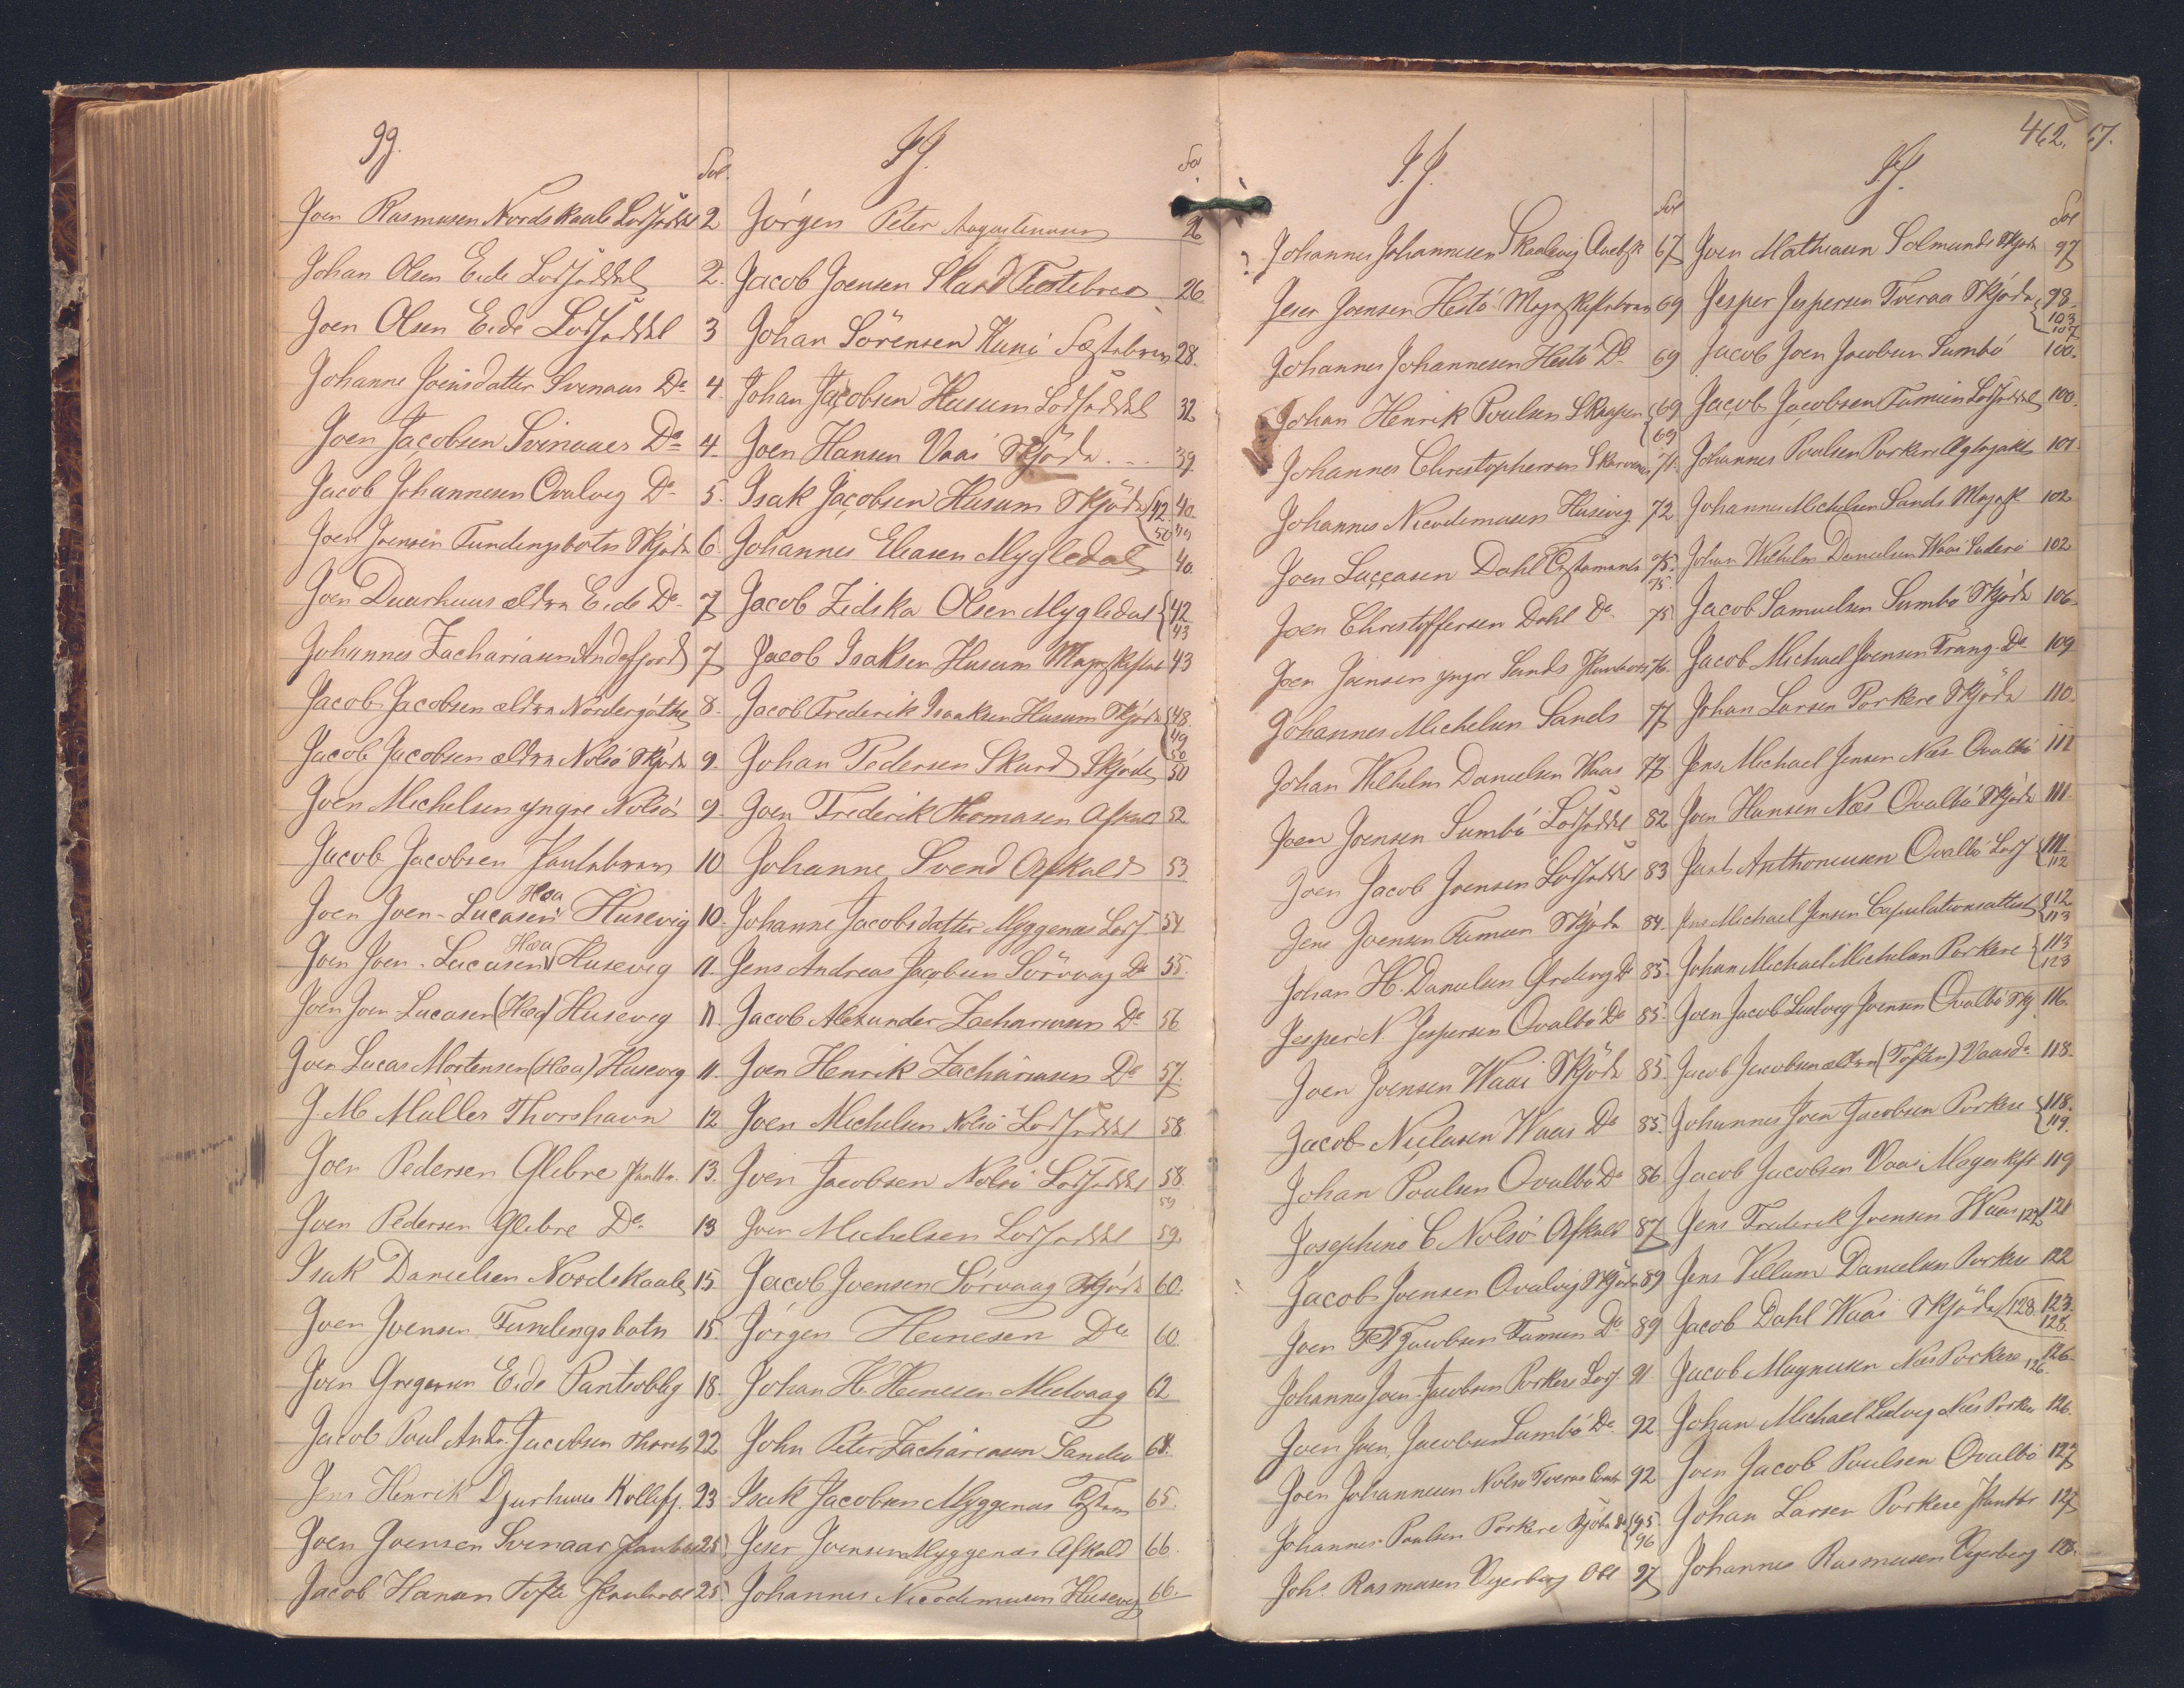 J J.
Fol.
Joen Rasmusen Nordskaale Lodsseddel 2
Johan Olsen Eide Lodsseddel 2.
Joen Olsen Eide Lodsseddel 3
Johanne Joensdatter Svinaaer Do 4.
Joen Jacobsen Svinaaer Do 4.
Jacob Johannesen Qvalvig Do 5.
Joen Joensen Fundingsbotn Skjöde 6.
Joen Duurhuus ældre Eide Do 7
Johannes Zachariasen Andefjord 7
Jacob Jacobsen ældre Nordregöthe 8.
Jacob Jacobsen ældre Nolsö Skjöde 9.
Joen Michelsen yngre Nolsö 9.
Jacob Jacobsen 10
Joen Joen-Lucasen Hæa Husevig 10.
Joen Joen-Lucasen Hæa Husevig 11.
Joen Joen Lucasen (Hæa) Husevig 11.
Joen Lucas Mortensen (Hæa) Husevig 11.
J. M Müller Thorshavn 12
Joen Pedersen Glibre Panteb. 13.
Joen Pedersen Glibre Do 13
Isak Danielsen Nordskaale 15.
Joen Joensen Fundingsbotn 15.
Joen Gregersen Eide Panteoblig 18.
Jacob Poul Andr. Jacobsen Thorsh 22
Jens Henrik Djurhuus Kollefj. 23
Joen Joensen Svinaar 25
Jacob Hansen Tofte 25.
J J.
Fol
Jörgen Peter Augustinusen 26
Jacob Joensen Skard Festebrev 26.
Johan Sörensen Kunö Fæstebrev 28.
Johan Jacobsen Husum Lodsseddel 32
Joen Hansen Vaai Skjöde 39.
Isak Jacobsen Husum Skjöde 42 40.
50 49
Johannes Eliasen Mygledal 40.
Jacob Zidska Olsen Mygledal 42
43
Jacob Isaksen Husum Mageskifte 43
Jacob Frederik Isaksen Husum Skjöde 48.
49
50
Johan Pedersen Skard Skjöde 50
Joen Frederik Thomasen Afkald 52
Johanne Svend Afkald 53
Johanne Jacobsdatter Myggenæs Lods 54
Jens Andreas Jacobsen Sörvaag Do 55.
Jacob Alexander Zachariasen Do 56
Joen Henrik Zachariasen Do 57.
Joen Michelsen Nolsö Lodsseddel 58.
Joen Jacobsen Nolsö Lodsseddel 58.
59
Joen Michelsen Lodsseddel 59.
Jacob Joensen Sörvaag Skjöde 60.
Jörgen Heinesen Do 60.
Johan H. Heinesen Midvaag 62
John Peter Zachariasen Sandev 68.
Isak Jacobsen Myggenæs Testam 65.
Jeser Joensen Myggenæs Afkald 66.
Johannes Nicodemusen Husevig 66.
J. J.
Fol
Johannes Johannesen Skaalevig Auctsk 67
Jeser Joensen Hestö Mageskiftebrev 69
Johannes Johannesen Hestö Do 69
Johan Henrik Poulsen Skaapen 69
69
Johannes Christophersen Skarvenæs 71.
Johannes Nicodemusen Husevig 72
Joen Luccasen Dahl Testamente 75.
75.
Joen Christoffersen Dahl Do 75
Joen Joensen yngre Sands 76.
Johannes Michelsen Sands 77
Johan Wilhelm Danielsen Waai 77.
Joen Joensen Sumbö Lodsseddel 82
Joen Jacob Joensen Lodsseddel 83
Jens Joensen Famien Skjöde 84.
Johan H. Danielsen Ordevig Do 85.
Jesper N Jespersen Qvalbö Do 85.
Joen Joensen Waai Skjöde 85.
Jacob Nielasen Waai Do 85.
Johan Poulsen Qvalbö Do 86.
Josephine C Nolsö Afkald 87
Jacob Joensen Qvalvig Skjöde 89
Joen Jacobsen Famien Do 89
Johannes Joen-Jacobsen Porkere Lods 91
Joen Joen Jacobsen Sumbö Do 92
Joen Johannesen Nolsö Tveraa 92
Johannes Poulsen Porkere Skjöde Do 95.
96
Johs. Rasmusen Vejerberg Obl 97
462. 67.
J. J.
Fol
Joen Mathiasen Solmunde Skjöde 97
Jesper Jespersen Tveraa Skjöde 98.
103
107
Jacob Joen Jacobsen Sumbö 100.
Jacob Jacobsen Famien Lodsseddel 100.
Johannes Poulsen Porkere 101.
Johannes Michelsen Sands Magesk 102
Johan Wilhelm Danielsen Waai Suderö 102
Jacob Samuelsen Sumbö Skjöde 106
Jacob Michael Joensen Frang. Do 109
Johan Larsen Porkere Skjöde 110.
Jens Michael Jensen Næs Qvalbö 111
Joen Hansen Næs Qvalbö Skjöde 111.
Jacob Anthoniusen Qvalbö Lods 111
112
Jens Michael Jensen Copulationsattest 112
113
Johan Michael Michelsen Porkere 113
123
Joen Jacob Ludvig Joensen Qvalbö Skj 116.
Jacob Jacobsen ældre (Toften) Vaai do 118.
Johannes Joen Jacobsen Porkere 118.
119.
Jacob Jacobsen Vaai Mageskift 119
Jens Frederik Joensen Waai 127 121
Jens Villum Danielsen Porkere 122
Jacob Dahl Waai Skjöde 128. 123.
128.
Jacob Magnusen Næs Porkere 126. 126.
Johan Michael Ludvig Næs Porkere 126.
Joen Jacob Poulsen Qvalbö 127
Johan Larsen Porkere Pantbr 127
Johannes Rasmusen Vejerberg 128.